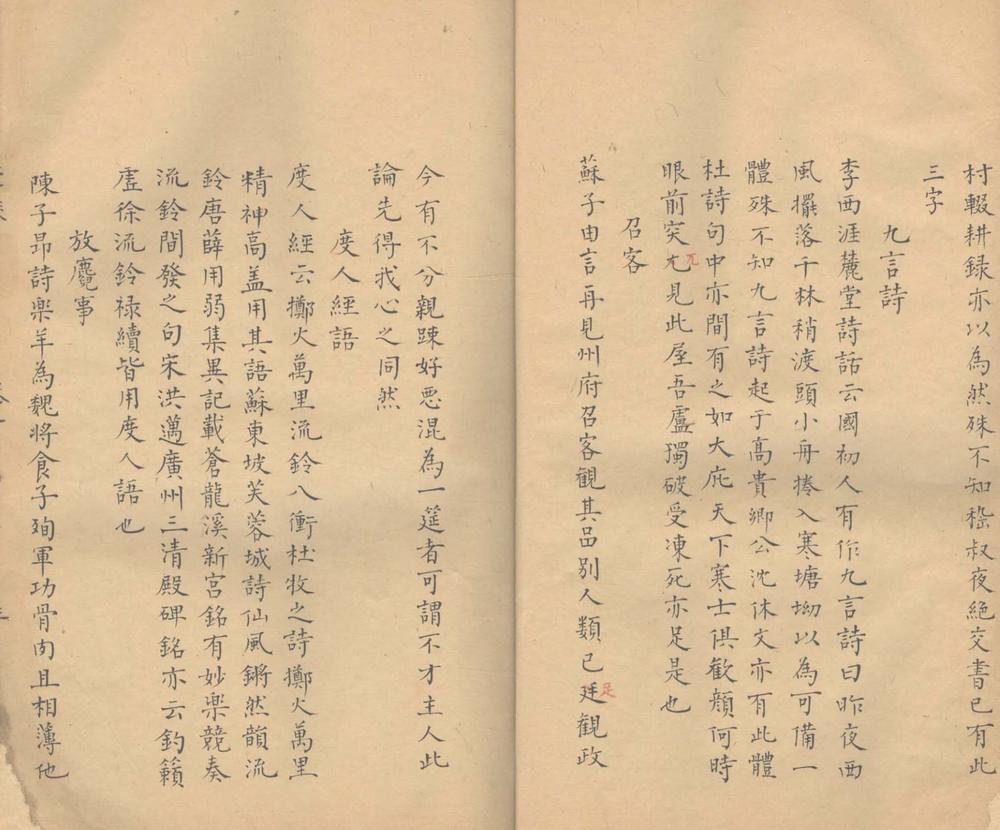 村輟耕録亦以為然殊不知嵇叔夜絶交書已有此
三字
九言詩
李西涯麓堂詩話云國初人有作九言詩曰昨夜西
風擺落千林稍渡頭小舟捲入寒塘坳以為可備一
體殊不知九言詩起于高貴卿公沈休文亦有此體
杜詩句中亦間有之如大庇天下寒士俱歡顔何時
眼前突兀見此屋吾盧獨破受凍死亦足是也
兀
召客
蘇子由言再見州府召客觀其品別人類已廷觀政
足
今有不分親踈好惡混為一筵者可謂不才主人此
論先得我心之同然
度人經語
度人經云擲火萬里流鈴八衝杜牧之詩擲火萬里
精神高盖用其語蘇東坡芙蓉城詩仙風鏘然韻流
鈴唐薛用弱集異記載蒼龍溪新宮銘有妙樂競奏
流鈴間發之句宋洪邁廣州三清殿碑銘亦云鈞籟
虛徐流鈴禄續皆用度人語也
放麑事
陳子昻詩樂羊為魏將食子殉軍功骨肉且相薄他